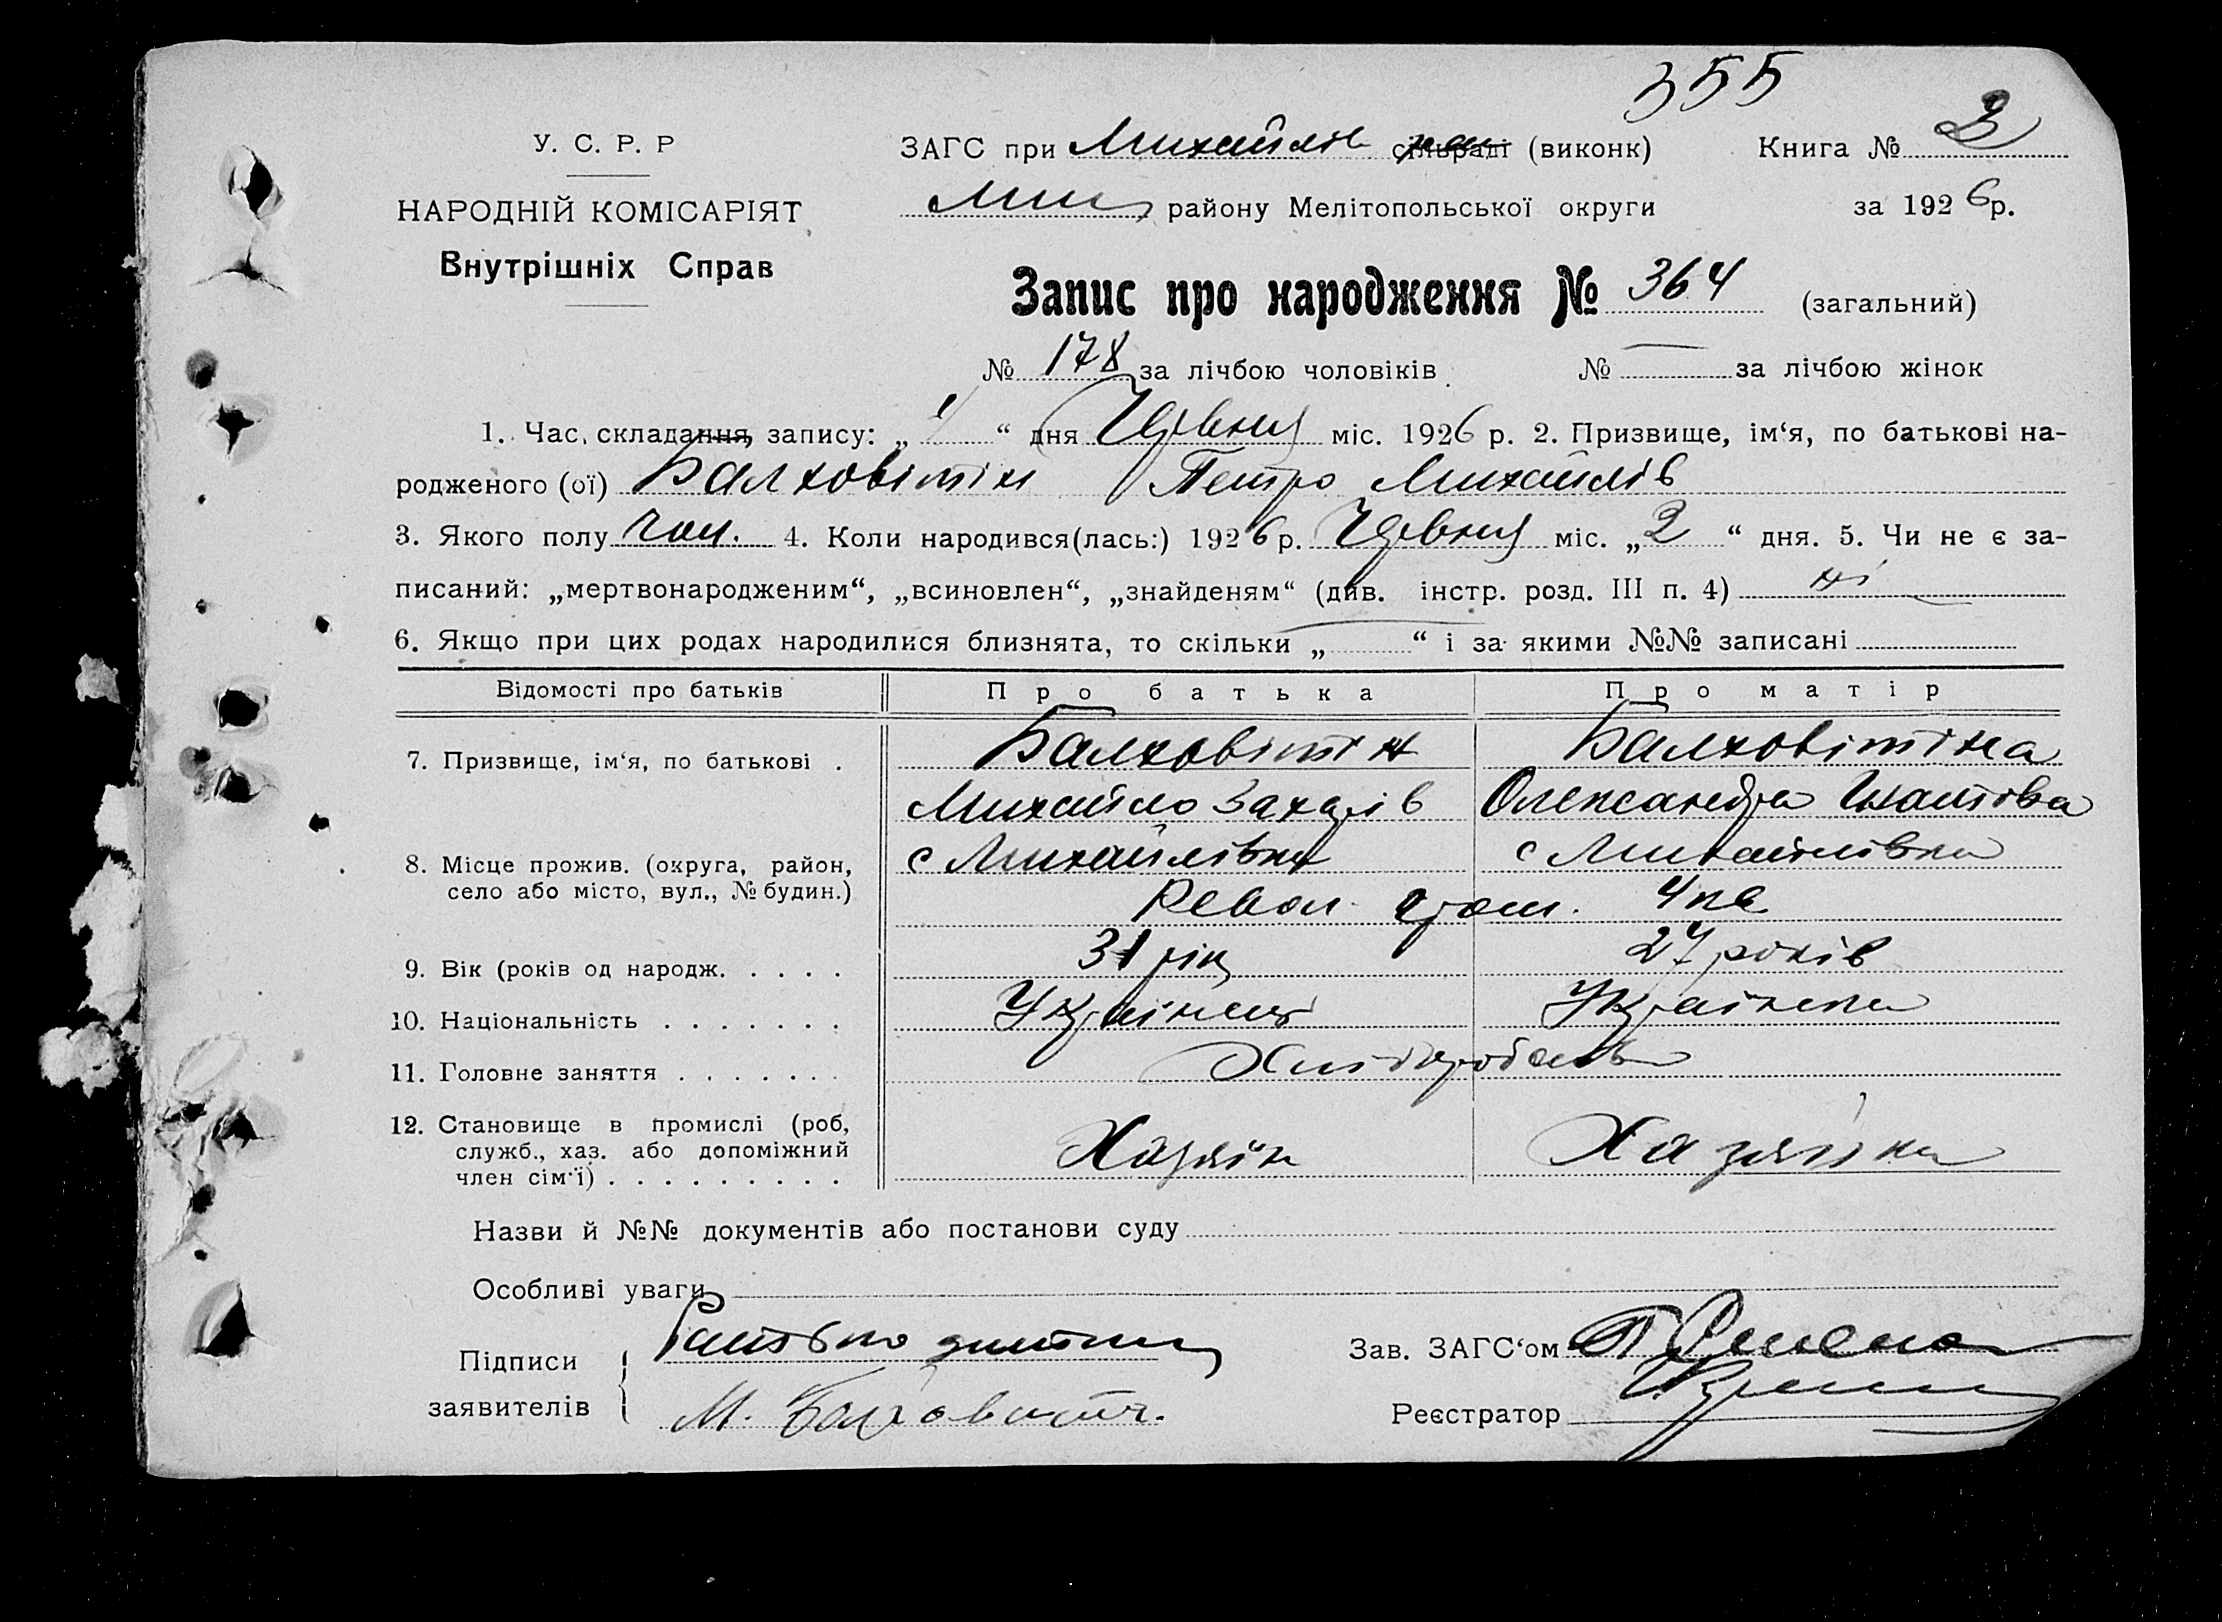 355
У. С. Р. Р
ЗАГС при Михайлів сільраді (виконк) Книга № 3
НАРОДНІЙ КОМІСАРІЯТ
Мих району Мелітопольської округи за 1926 р.
Внутрішніх Справ
Запис про народження № 364 (загальний)
№ 178 за лічбою чоловіків № — за лічбою жінок
1. Час складання запису: „4“ дня Червня міс. 1926 р. 2. Призвище, ім‘я, по батькові на-
родженого (ої) Балховітін Петро Михайлів
3. Якого полу чол. 4. Коли народився(лась:) 1926 р. Червня міс. „2“ дня. 5. Чи не є за-
писаний: „мертвонародженим“, „всиновлен“, „знайденям“ (див. інстр. розд. III п. 4) ні
6. Якщо при цих родах народилися близнята, то скільки „ — “ і за якими №№ записані
Відомості про батьків Про батька Про матір
7. Призвище, ім‘я, по батькові . Балховітін Балховітіна
Михайло Захарів Олександра Гнатова
8. Місце прожив. (округа, район, с Михайлівка с Михайлівка
село або місто, вул., № будин.) Револ. 4 кв
9. Вік (років од народж. . . . . 31 рік 27 років
10. Національність . . . . . . . Українець Українка
11. Головне заняття . . . . . . . Хліборобство
12. Становище в промислі (роб,
служб., хаз. або допоміжний Хазяїн Хазяйка
член сім‘ї) . . . . . . . . .
Назви й №№ документів або постанови суду
Особливі уваги
Підписи Батько дитини Зав. ЗАГС‘ом
заявителів М. Балховитин. Реєстратор